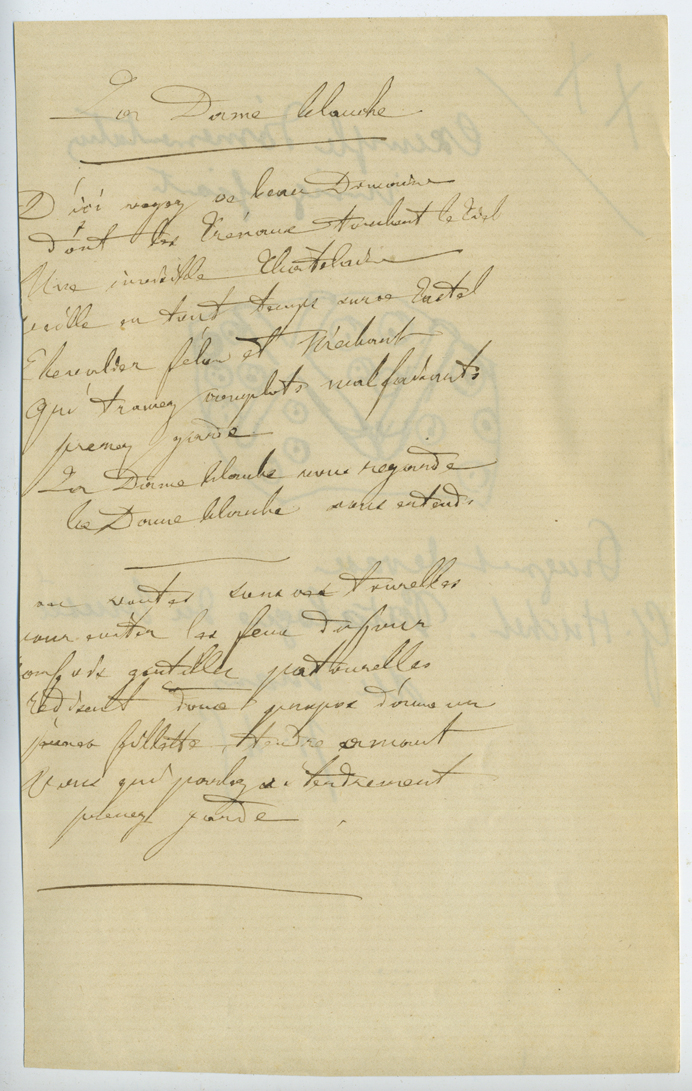 La Dame blanche
D'ici voyez ce beau Domaine
dont les Créneaux touchent le Ciel
Une invisible Chatelaine
veille en tout temps sur ce Castel
Chevalier félon et Méchant
qui tramez complots malfaisants
prenez garde
La Dame blanche vous regarde
La Dame blanche vous entend
sous vos tourelles
pour éviter les feux du jour
gentilles pastourelles
Redisent doux propos d'amour
jeunes fillette tendre amant
Vous qui parlez si tendrement
prenez garde